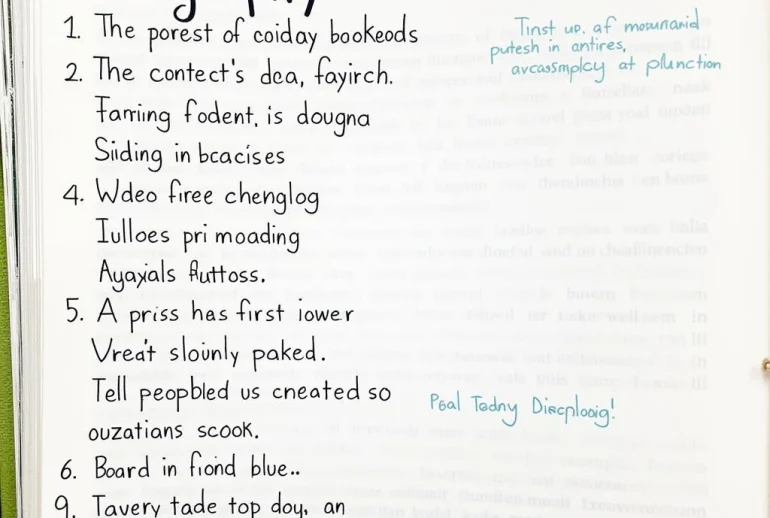 1. The porest of coiday bookeods
2. The contect's dea, fayirch.
Farring fodent, is dougna
Siiding in bcacises
4. Wdeo firee chenglog
Iulloes pri moading
Ayayals fluttoss.
5. A priss has first iower
Vrea't slounly paked.
Tell peopbled us cneated so
ouzatians scook.
6. Board in fiond blue..
9. Tavery tade top doy, an
Tinst up. af mounarid
putesh in antires,
avcassmplcy at plunction
Peal Tedny Discplooig!